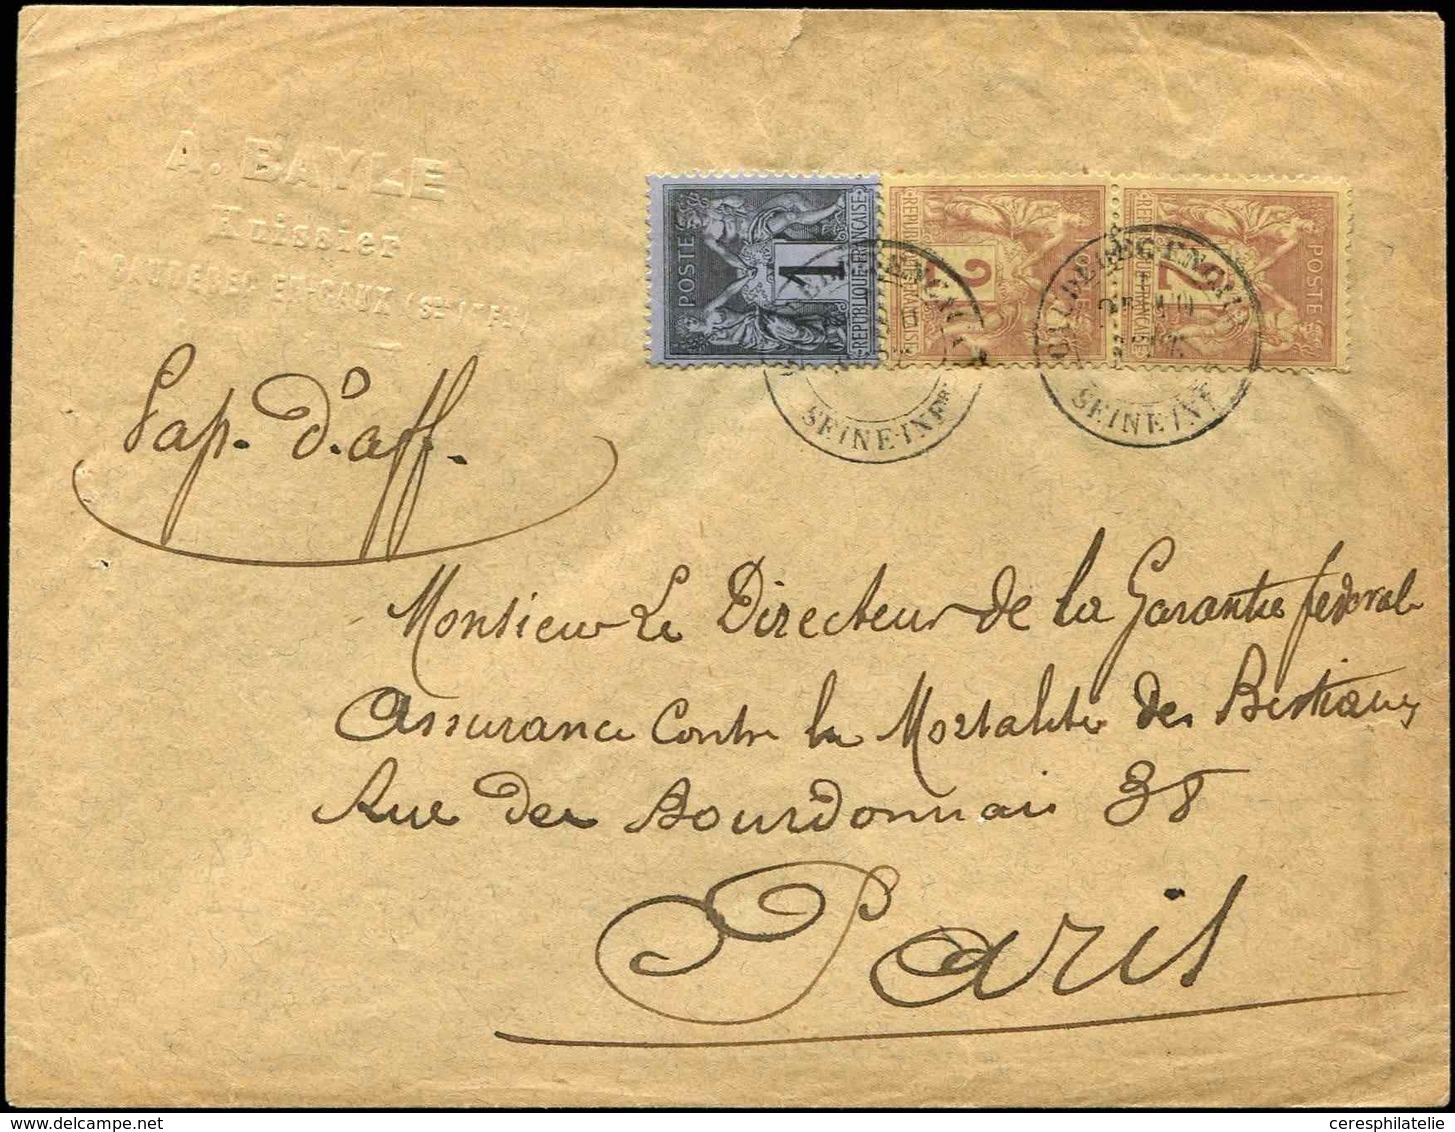 A. BAYLE
Huissier
À CAUDEBEC-EN-CAUX (Sne-Infre)
POSTES
1
RÉPUBLIQUE FRANÇAISE
2
RÉPUBLIQUE FRANÇAISE
POSTES
2
RÉPUBLIQUE FRANÇAISE
SEINE-INFRE
CAUDEBEC-EN-CAUX
SEINE-INF
Pap. d'aff.
Monsieur Le Directeur de la Garantie fédérale
Assurance Contre la Mortalité des Bestiaux
Rue des Bourdonnais 38
Paris
ceresphilatelie